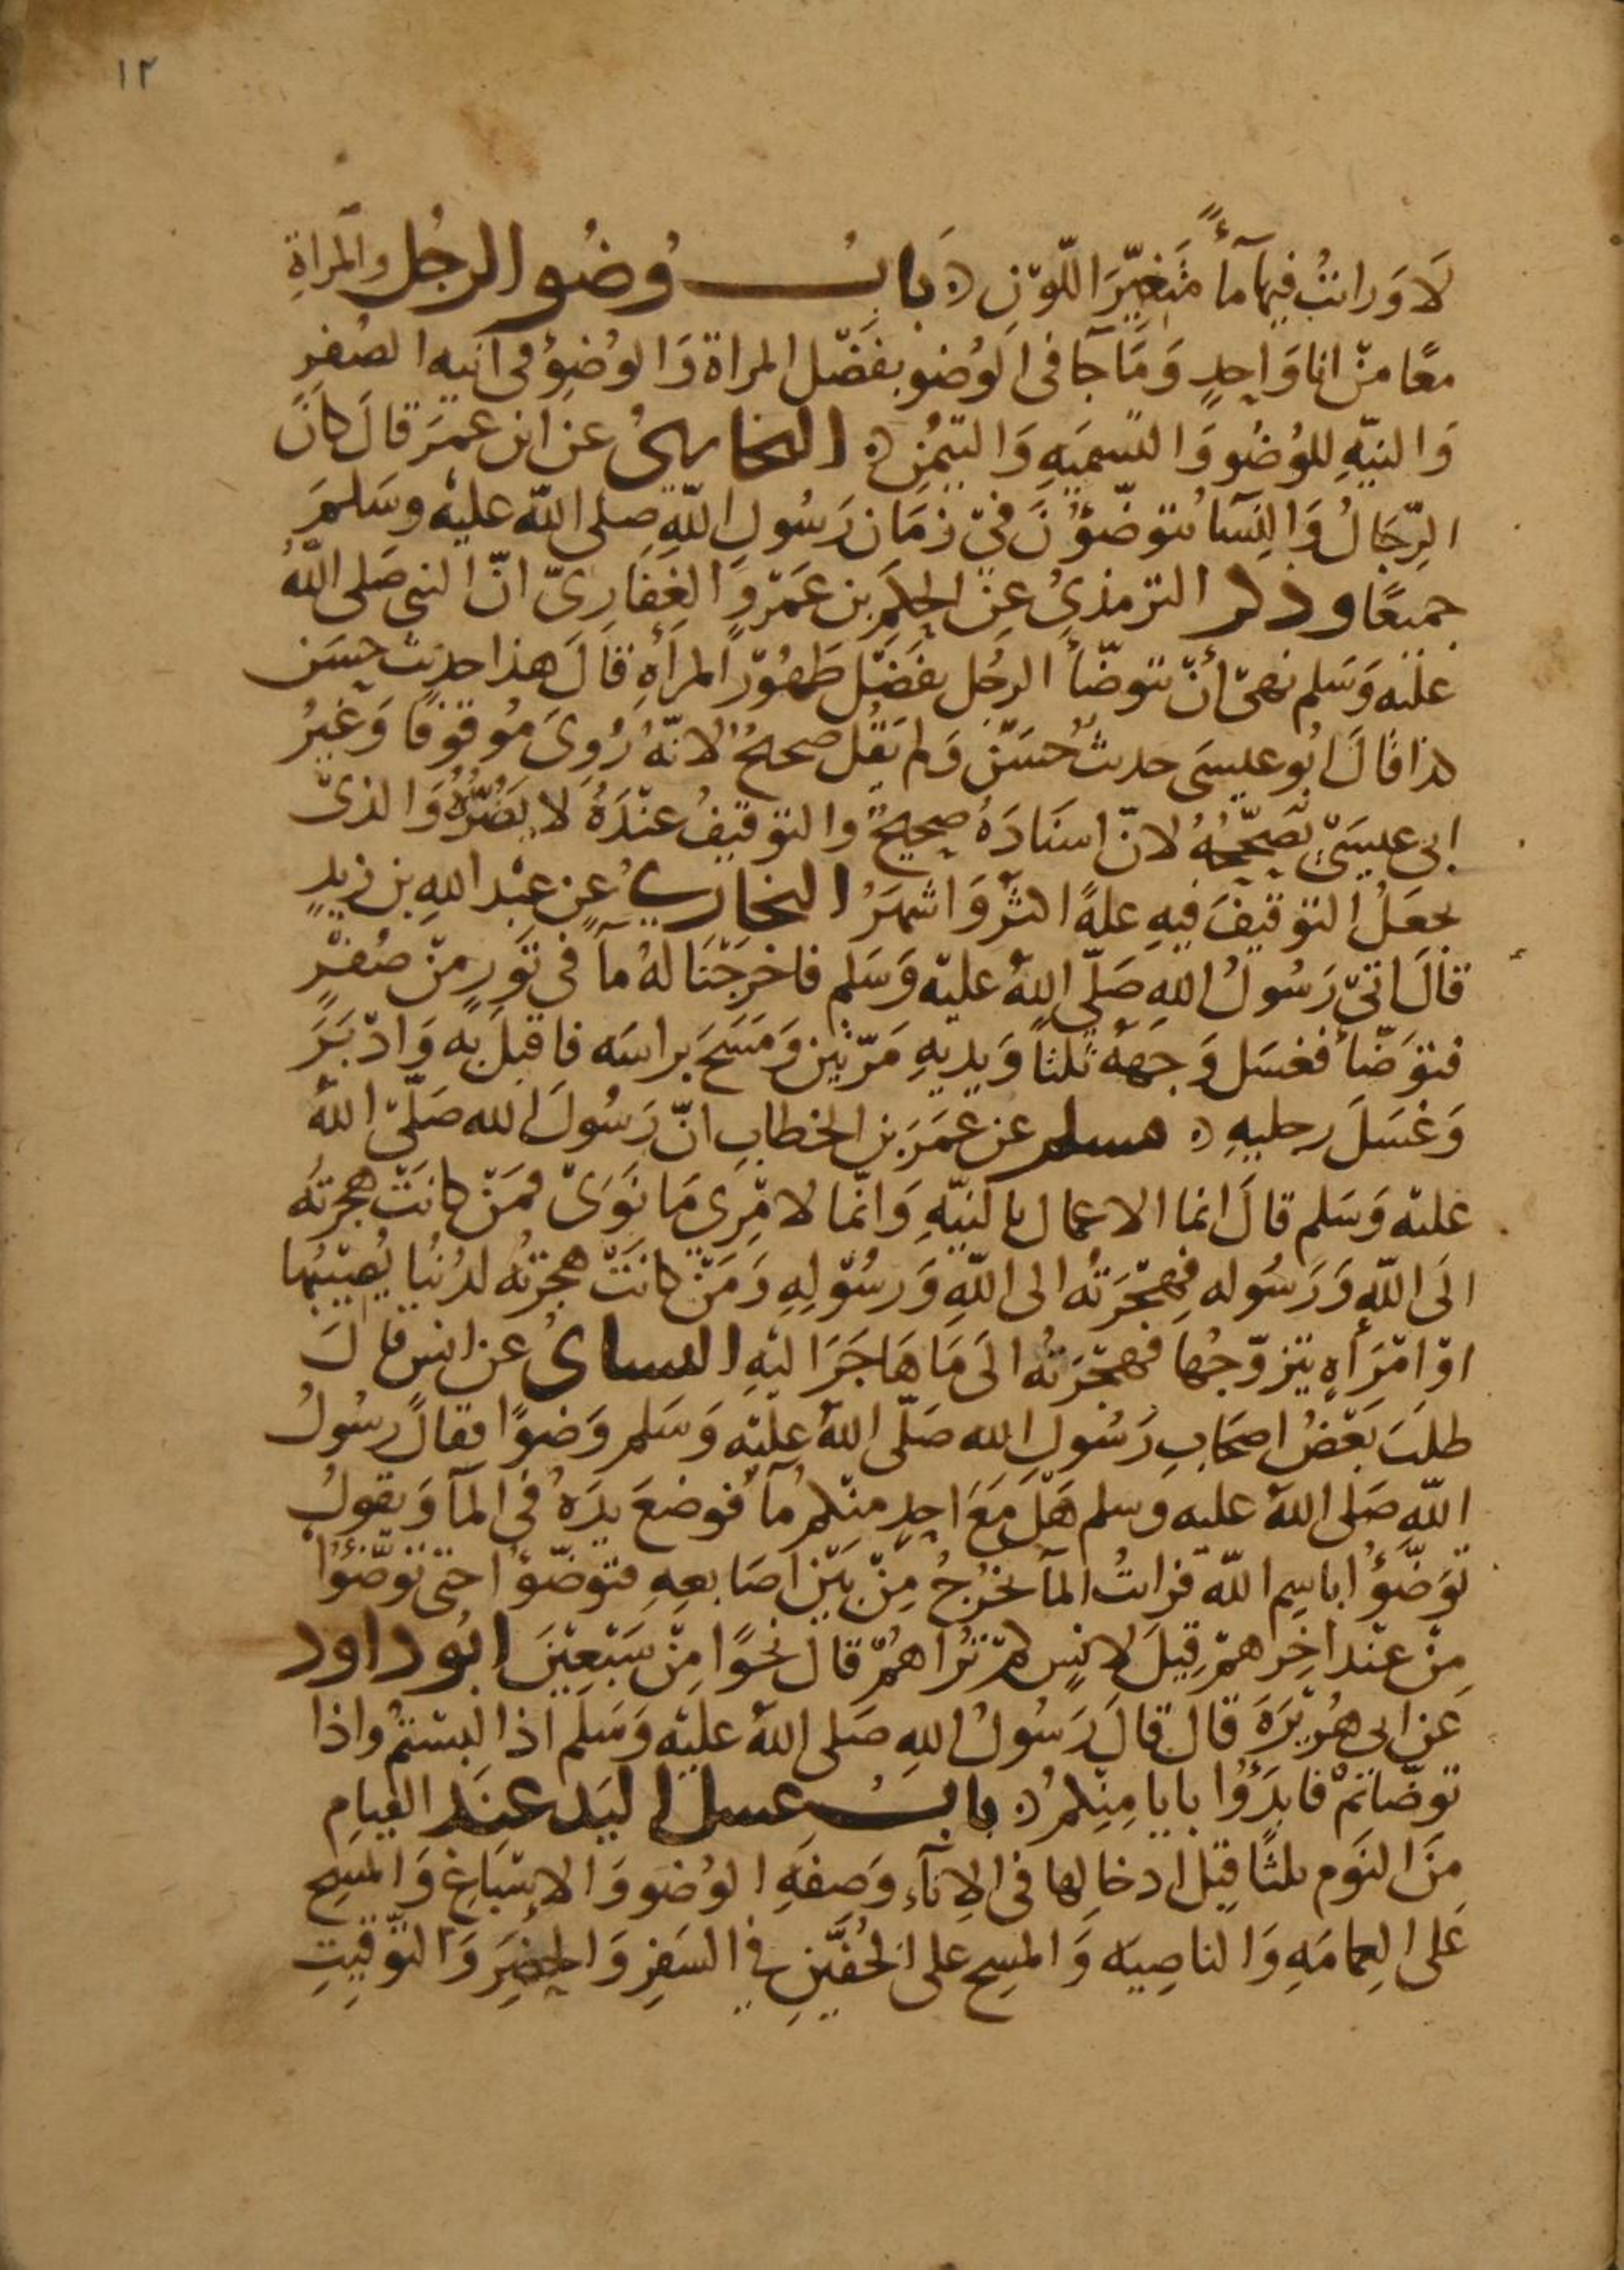 ١٢
لَا وَرايتُ فيها مآءً مُتَغيِّرَ اللّوْنِ بَابُ وُضُو الرجُل والمَراةِ
معًا منْ انا وَاحِدٍ وَمَا جَا فى الوُضو بفَضْل المراة وَالوُضوُ فى آنيهِ الصُفْرِ
وَالنيّهِ للوُضُو وَالتسميَهِ وَالتيمُنِ البخارىُ عن ابن عمَرَ قالَ كانَ
الرِّجَالُ وَالنِسَآ يتوضّؤُنَ فىْ زمَان رَسُولِ اللّهِ صلى اللّه عليْه وسَلمَ
جميعًا وذكر الترمذىُ عنِ الحكَمِ بن عَمْرٍو الغِفَارِىّ انّ النبى صَلى اللّهُ
عليْه وَسَلم نهىْ أنْ يتوضّأ الرجُل بفَضْل طَهُوْر المرأهِ قالَ هذا حديث حسَن
كذا قالَ ابُو عيسَى حديثُ حسَنٌ وَلم يَقُل صحيحُ لانّهُ رُوِىَ مُوقوْفًا وَغيْرُ
ابى عيسَىْ يُصَحّحُهُ لانّ اسنَادَهُ صحِيحٌ والتوْقيْفُ عنْدَهُ لا يَضُرُّهُ وَالذىْ
يجعَلُ التوْقيفَ فيهِ علهً اكثرُ وَاشهَرُ البخارىُ عن عبْد اللهِ بن زيدٍ
قالَ اتىْ رَسُولُ اللهِ صَلّى اللهُ عليْه وَسَلم فاخرَجْنَا لهُ مآ في تَوْرٍ منْ صُفْرٍ
فتوَضّأ فغسَل وَجهَهُ ثلثاً وَيديْهِ مَرّتيْن وَمَسَحَ براسَه فاقبلَ بهِ وَادْبَرَ
وَغسَلَ رجليهِ مسلم عن عمَرَ بن الخطابِ انّ رَسُولَ الله صَلّى اللهُ
عليْه وَسَلم قالَ انما الاعمال بالنيّهِ وَانّما لامْرِى مَا نوَىْ فمَنْ كانَتْ هجرتُه
الَى اللهِ وَرَسُوله فهِجْرَتُه الى اللّهِ وَرسُوْلِهِ وَمَنْ كانَتْ هجرتُه لدُنْيا يُصِيْبُها
اوْ امْرَأهٍ يتزوّجُها فهجْرَتُه الَى مَا هَاجَرَ اليْهِ النساىُ عن انسٍ قالَ
طلَبَ بَعْضُ اصحَابِ رَسُول الله صَلّى اللهُ عليْه وَسَلم وَضوًا فقالَ رسُولُ
اللّه صَلى اللهُ عليه وسلم هَلْ مَعَ احدٍ منْكم مآ فوضعَ يدَهُ فى المآ وَيقولُ
تَوَضّؤُا باسم اللّه فرايتُ المآ يخرُجُ مِنْ بَيْن اصَابعِهِ فتوَضّوُا حتى توَضّؤُا
مِنْ عنْد اخِرهمْ قِيلَ لانسٍ كمْ تُراهُمْ قال نحوًا مِنْ سَبْعِيْنَ ابُو داود
عَن ابى هُرَيْرَةَ قال قالَ رَسُولُ اللهِ صَلى اللهُ عليْه وَسَلم اذا لبسْتمُ واذا
توَضّاتمْ فابدَؤُا بايامِنِكمُ بابُ غسل اليَد عنَد القيامِ
مِنَ النوَم ثلثًا قبْلَ ادخالها فى الاِنآءِ وَصِفَهِ الوُضو وَالاِسْبَاغِ وَالمَسْحِ
عَلى العِمامَهِ وَالناصِيَه وَالمسحِ على الخُفَّيْنِ في السَفرِ وَالحضَرِ وَالتّوْقيتِ